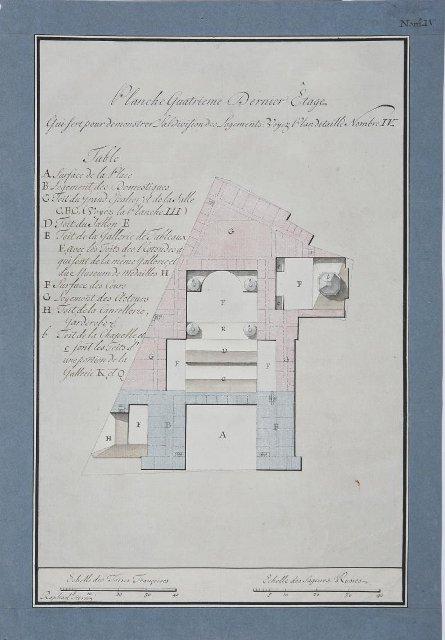 Nomb. IV
Planche Quatrieme Dernier Étage
Qui sert pour demonstrer la division des Logements. Voyez Plan detaillé Nombre IV.
Table
A. Surface de la Place
B Logement des Domestiques
C Toit du Grand et de la Salle
C.B.C. (Voyez la Planche III)
D Toit du Sallon E
E Toit de la Gallerie de Tableaux
F avec les Toits des Rotondes
qui sont de la même Gallerie et
du Museum de Medailles H
F Surface des Cours
G Logement des Acteurs
H Toit de la Chancellerie,
Garderobe
b Toit de la Chapelle et
c sont les toits d'
une portion de la
Gallerie K et Q
G
F
F
F
E
D
C
G
F
F
G
H
F
B
A
B
Echelle des Toises Françoises
10 20 30 40
Echelle des Sagènes Russes
5 10 20 30 40